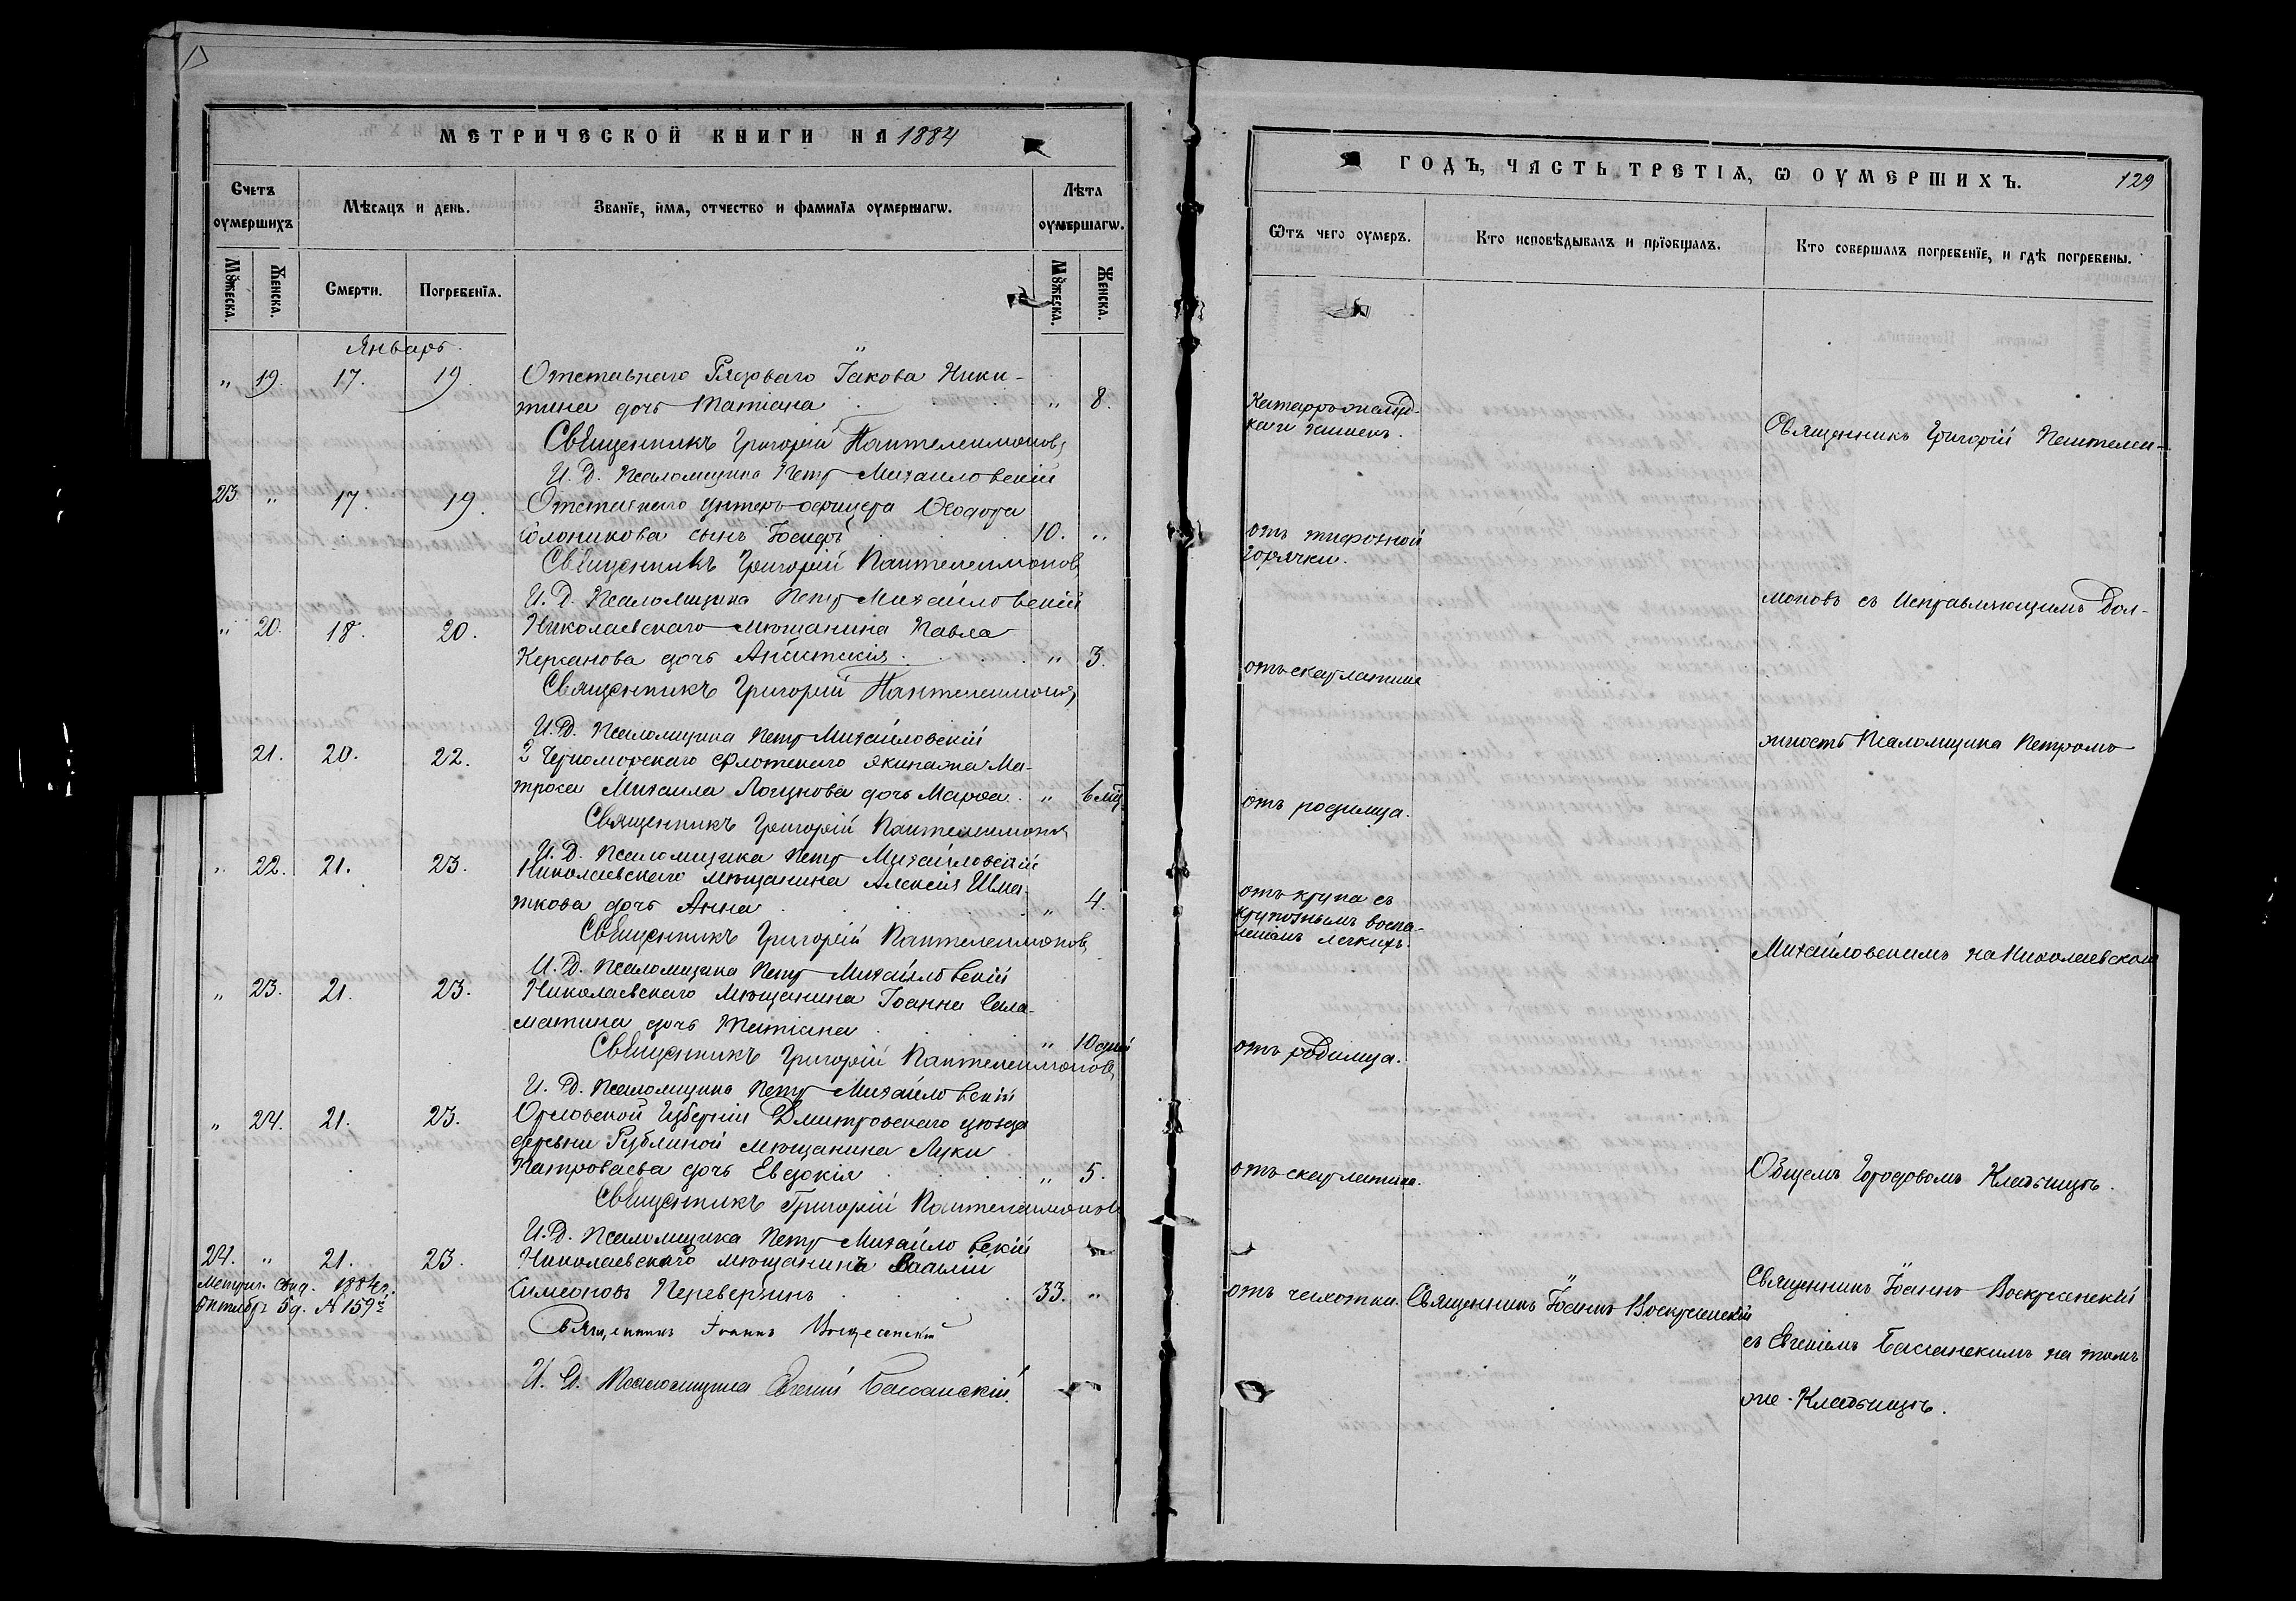 МЕТРИЧЕСКОЙ КНИГИ НА 1884
Счетъ оумершихъ
Мѣсяцъ и день.
Званїе, имя, отчество и фамилїя оумершагѡ.
Лѣта оумершагѡ.
Мꙋжеска.
Женска.
Смерти.
Погребенїя.
Мꙋжеска.
Женска.
Январь.
„ 19. 17. 19. Отставнаго Рядоваго Іакова Ники-
тина дочь Татіана „ 8.
Священникъ Григорій Пантелеимоновъ
И. Д. Псаломщика Петръ Михайловскій
23 „ 17. 19. Отставнаго унтеръ-офицера Ѳеодора
Солоникова сынъ Іосифъ 10. „
Священникъ Григорій Пантелеимоновъ
И. Д. Псаломщика Петръ Михайловскій
„ 20. 18. 20. Николаевскаго мѣщанина Павла
Керсанова дочь Анастасія „ 3.
Священникъ Григорій Пантелеимоновъ
И. Д. Псаломщика Петръ Михайловскій
21. 20. 22. 2 Черноморскаго Флотскаго экипажа Ма-
троса Михаила Логунова дочь Марѳа. „ 6 мц.
Священникъ Григорій Пантелеимоновъ
И. Д. Псаломщика Петръ Михайловскій
„ 22. 21. 23. Николаевскаго мѣщанина Алексія Шма-
ткова дочь Анна „ 4.
Священникъ Григорій Пантелеимоновъ
И. Д. Псаломщика Петръ Михайловскій
„ 23. 21. 23. Николаевскаго мѣщанина Іоанна Сала-
матина дочь Татіана „ 10 дней
Священникъ Григорій Пантелеимоновъ
И. Д. Псаломщика Петръ Михайловскій
„ 24. 21. 23. Орловской Губерніи Дмитровскаго уѣзда
деревни Рублиной мѣщанина Луки
Патроваева дочь Евдокія „ 5.
Священникъ Григорій Пантелеимоновъ
И. Д. Псаломщика Петръ Михайловскій
24. „ 21. 23. Николаевскаго мѣщанинъ Василій
Симеоновъ Переверзинъ 33. „
Метрич. свид. 1884 г.
Октября 5 д. № 159
Священникъ Іоаннъ Воскресенскій
И. Д. Псаломщика Евгеній Басанскій.
ГОДЪ, ЧАСТЬ ТРЕТІЯ, Ѡ ОУМЕРШИХЪ.
129
Ѿтъ чего оумеръ.
Кто исповѣдывалъ и прїобщалъ.
Кто совершалъ погребенїе, и гдѣ погребены.
Катарръ желуд-
ка и кишекъ.
Священникъ Григорій Пантелеи-
отъ тифозной
горячки.
моновъ съ Исправляющимъ Дол-
отъ скарлатины
жность Псаломщика Петромъ
отъ родимца.
отъ крупа съ
крупознымъ воспа-
леніемъ легкихъ.
Михайловскимъ на Николаевском
отъ родимца.
отъ скарлатины.
Общемъ Городовомъ Кладбищѣ.
отъ чахотки.
Священникъ Іоаннъ Воскресенскій
Священникъ Іоаннъ Воскресенскій
съ Евгеніемъ Басанскимъ на томъ
же Кладбищѣ.